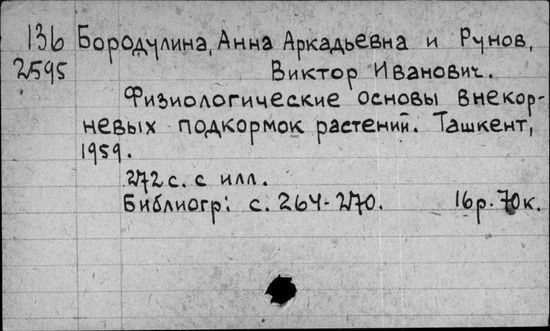 136 Бородулина, Анна Аркадьевна и Рунов,
2595 Виктор Иванович.
Физиологические основы внекор-
невых подкормок растений. Ташкент,
1959.
272 с. с илл.
Библиогр: с. 264-270. 16р. 70к.